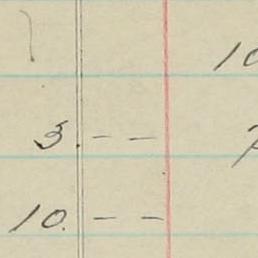 10
3. - -
10. - -